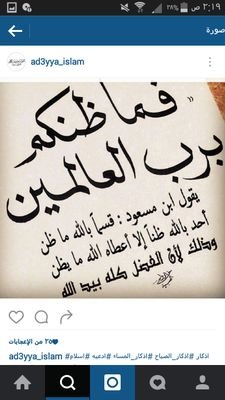 ٢:١٩ م
٢٨%
صورة
ad3yya_islam
فما ظنكم
برب العالمين
يقول ابن مسعود : قسماً بالله ما ظن
أحد بالله ظناً إلا أعطاه الله ما يظن
وذلك لأن الفضل كله بيد الله
٢٥ من الإعجابات
ad3yya_islam #اذكار #اذكار_الصباح #اذكار_المساء #ادعيه #اسلام